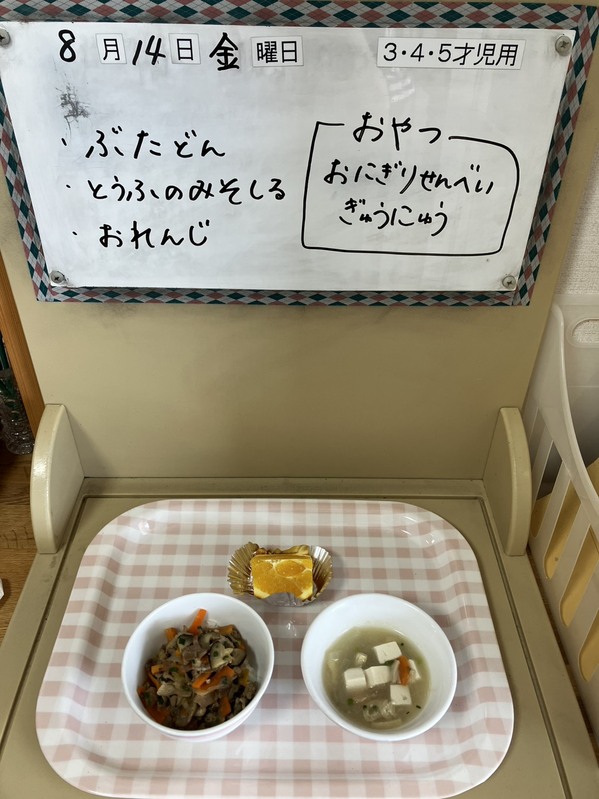 8月14日金曜日 3・4・5才児用
・ぶたどん
・とうふのみそしる
・おれんじ
おやつ
おにぎりせんべい
ぎゅうにゅう